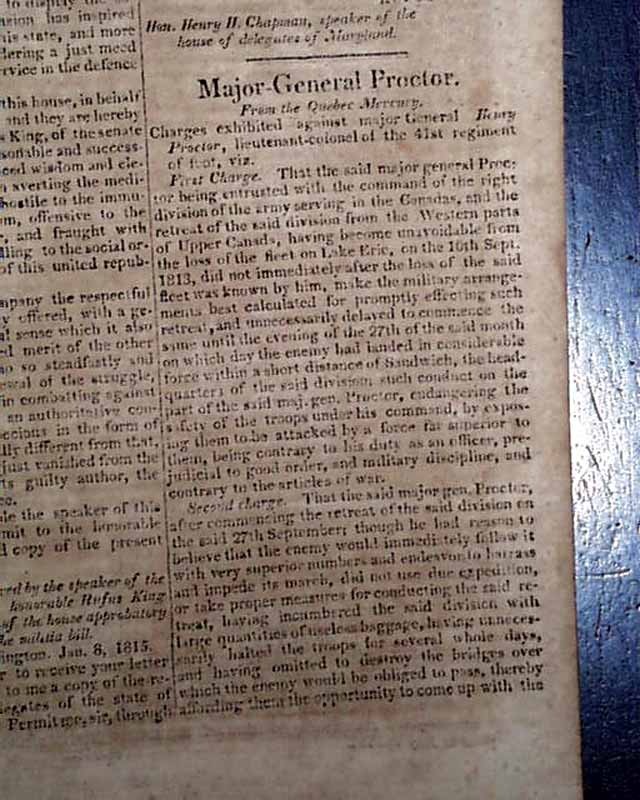 nsion has inspired
his state, and more
dering a just meed
rvice in the defence
this house, in behalf
and they are hereby
s King, of the senate
sonable and success-
ced wisdom and ele-
n averting the medi-
hostile to the immu-
m, offensive to the
, and fraught with
lling to the social or-
of this united repub-
mpany the respectful
y offered, with a ge-
al sense which it also
ed merit of the other
o so steadfastly and
of the struggle,
in combatting against
an authoritative
in the form of
lly different from that,
just vanished from the
ts guilty author, the
ce.
le the speaker of this
mit to the honorable
d copy of the present
red by the speaker of the
honorable Rufus King
of the house approbatory
the militia bill.
ington. Jan. 8, 1815.
r to receive your letter
to me a copy of the re-
legates of the state of
Permit me, sir, through
Hon. Henry H. Chapman, speaker of the
house of delegates of Maryland.
Major-General Proctor.
From the Quebec Mercury.
Charges exhibited against major General Henry
Proctor, lieutenant-colonel of the 41st regiment
of foot, viz.
First Charge. That the said major general Proc-
tor being entrusted with the command of the right
division of the army serving in the Canadas, and the
retreat of the said division from the Western parts
of Upper Canada, having become unavoidable from
the loss of the fleet on Lake Erie, on the 10th Sept.
1813, did not immediately after the loss of the said
fleet was known by him, make the military arrange-
ments best calculated for promptly effecting such
retreat, and unnecessarily delayed to commence the
same until the evening of the 27th of the said month
on which day the enemy had landed in considerable
force within a short distance of Sandwich, the head-
quarters of the said division; such conduct on the
part of the said maj. gen. Proctor, endangering the
safety of the troops under his command, by expos-
ing them to be attacked by a force far superior to
them, being contrary to his duty as an officer, pre-
judicial to good order, and military discipline, and
contrary to the articles of war.
Second charge. That the said major gen. Proctor,
after commencing the retreat of the said division on
the said 27th September; though he had reason to
believe that the enemy would immediately follow it
with very superior numbers and endeavor to harrass
and impede its march, did not use due expedition,
or take proper measures for conducting the said re-
treat, having incumbered the said division with
large quantities of useless baggage, having unneces-
sarily halted the troops for several whole days,
and having omitted to destroy the bridges over
which the enemy would be obliged to pass, thereby
affording them the opportunity to come up with the